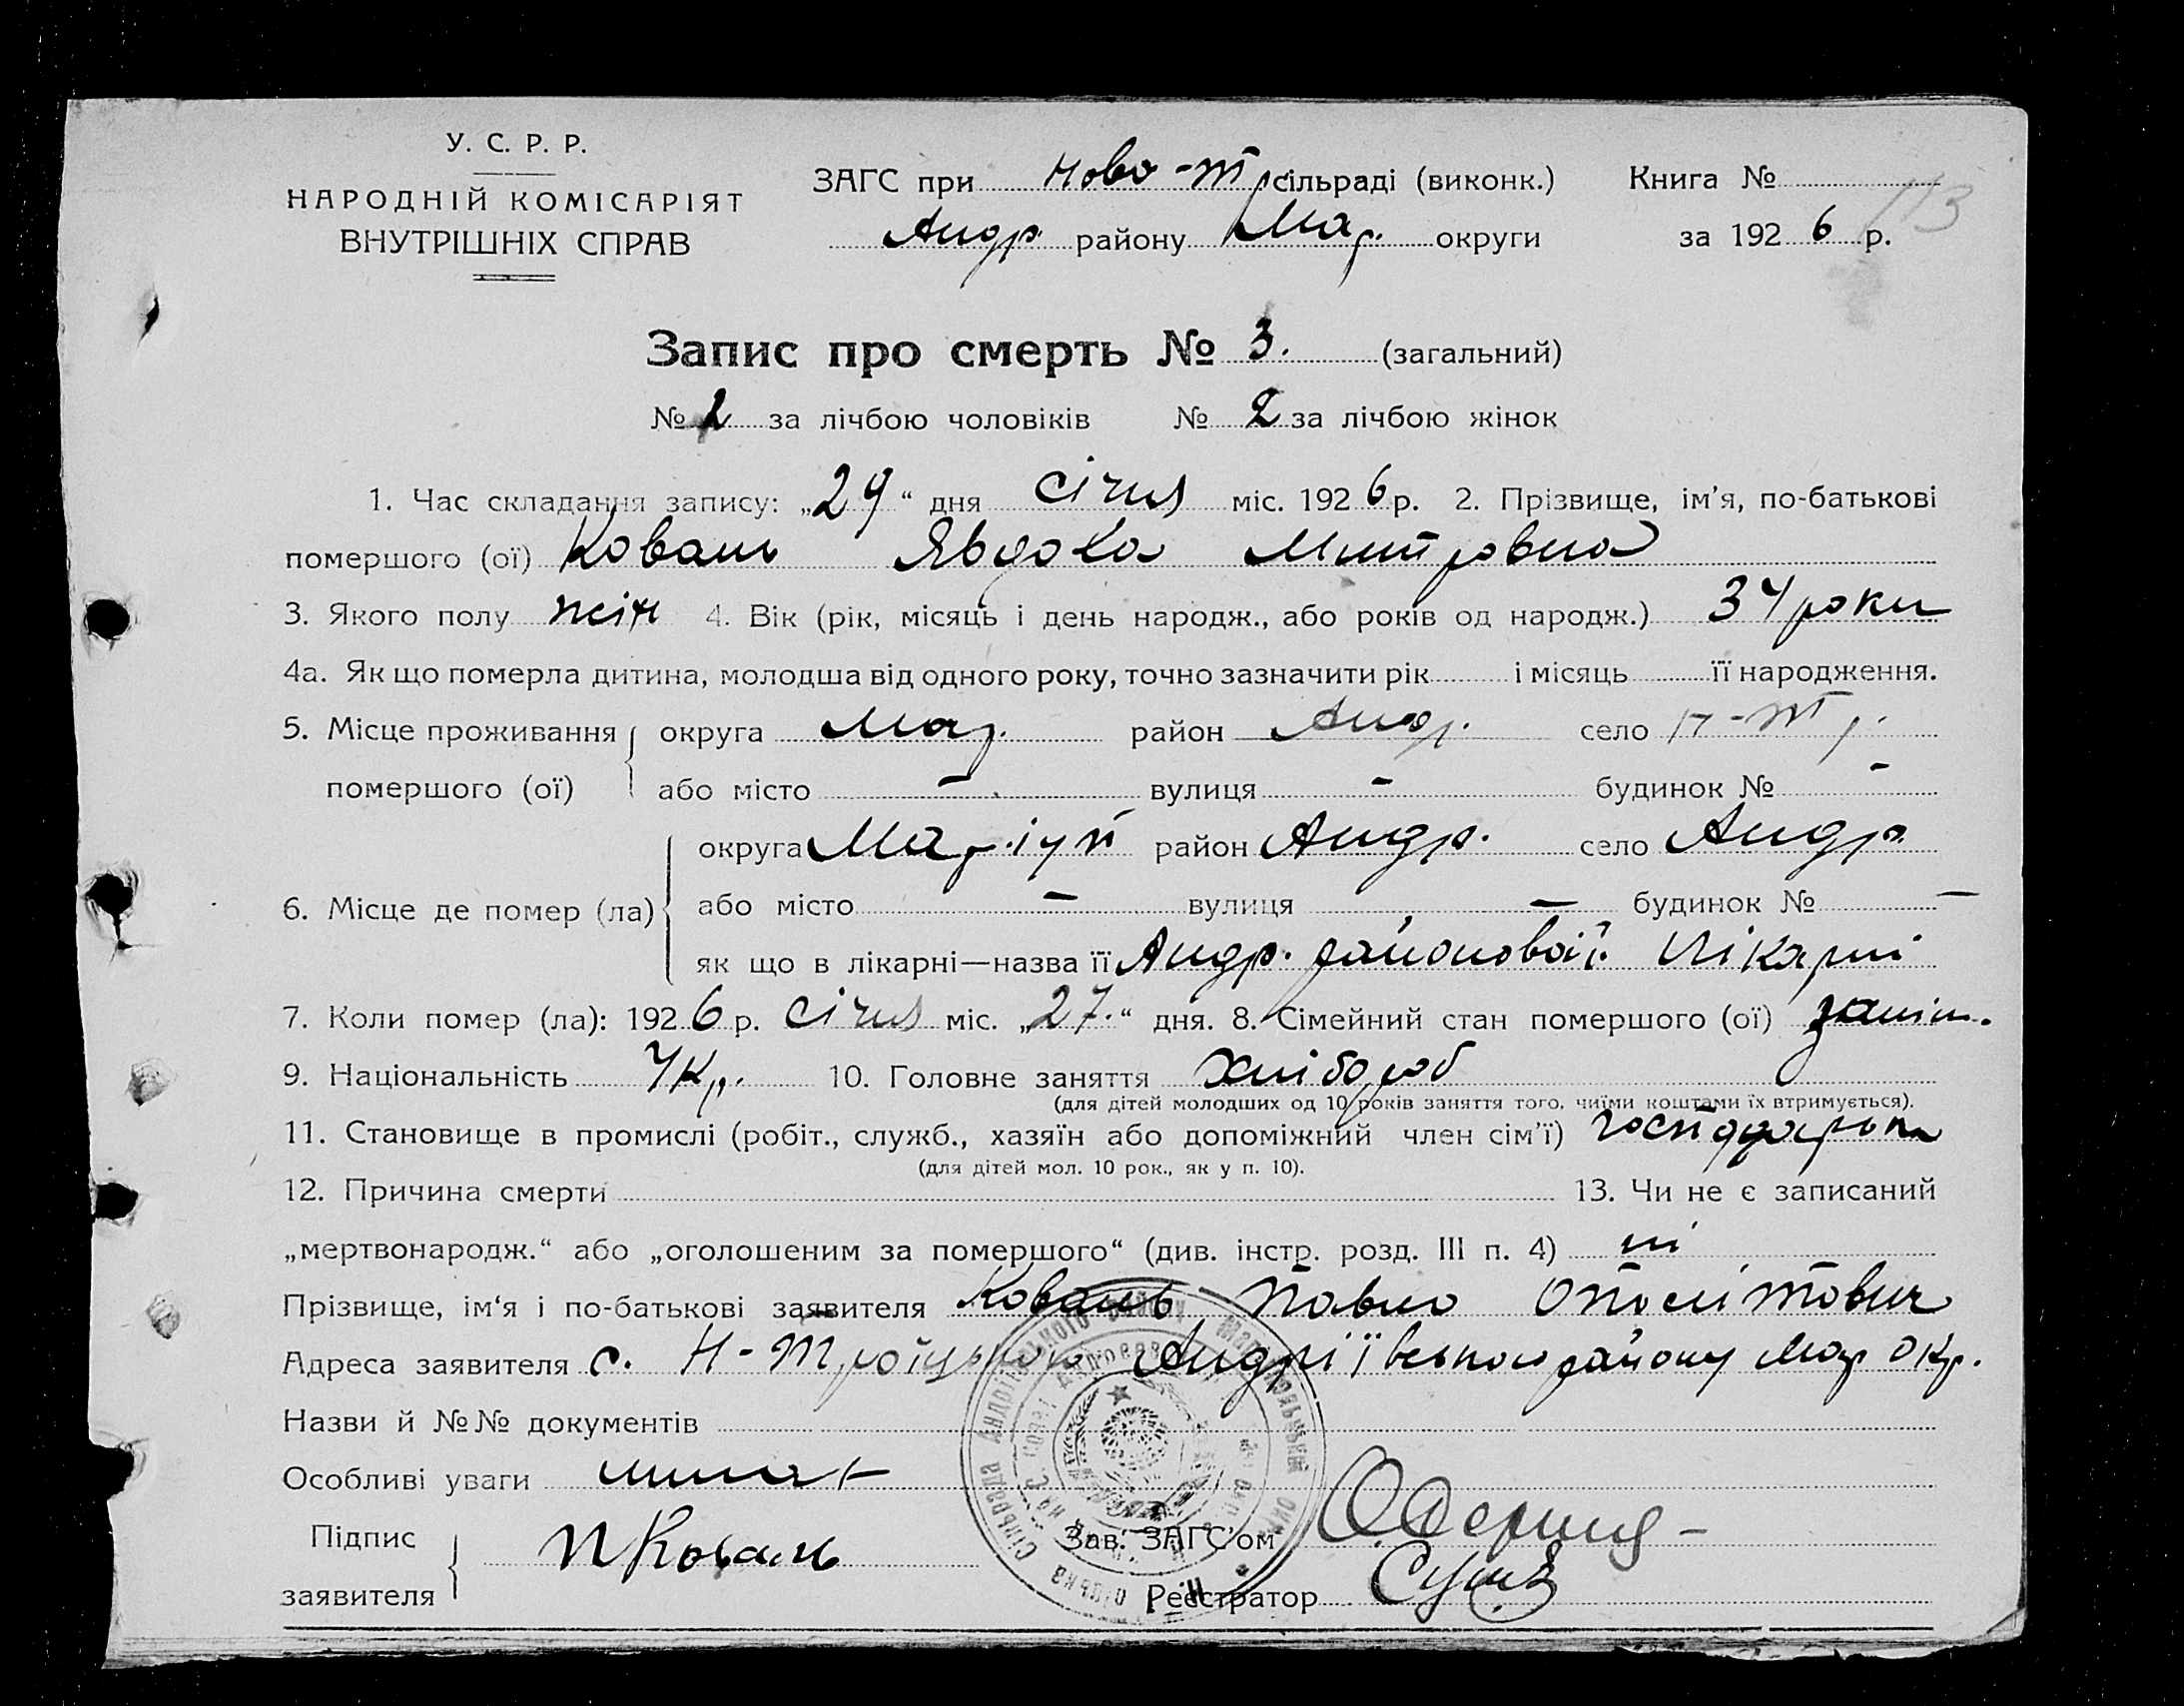 У. С. Р. Р.
НАРОДНІЙ КОМІСАРІЯТ
ВНУТРІШНІХ СПРАВ
ЗАГС при Ново-Тр. сільраді (виконк.) Книга №
Андр. району Мар. округи за 1926 р.
113
Запис про смерть № 3. (загальний)
№ за лічбою чоловіків № 2 за лічбою жінок
1. Час складання запису: „29“ дня січня міс. 1926 р. 2. Прізвище, ім'я, по-батькові
помершого (ої) Коваль Явдоха Митровна
3. Якого полу жін 4. Вік (рік, місяць і день народж., або років од народж.) 34 роки
4а. Як що померла дитина, молодша від одного року, точно зазначити рік і місяць її народження.
5. Місце проживання округа Мар. район Андр. село Н-Тр.
помершого (ої) або місто — вулиця — будинок № —
округа Маріуп район Андр. село Андр.
6. Місце де помер (ла) або місто — вулиця — будинок № —
як що в лікарні—назва її Андр. районовой лікарні
7. Коли помер (ла): 1926 р. січня міс. „27.“ дня. 8. Сімейний стан помершого (ої) заміж.
9. Національність Укр. 10. Головне заняття Хлібороб
(для дітей молодших од 10 років заняття того, чиїми коштами їх втримується).
11. Становище в промислі (робіт., служб., хазяїн або допоміжний член сім'ї)
(для дітей мол. 10 рок., як у п. 10).
12. Причина смерти 13. Чи не є записаний
„мертвонародж.“ або „оголошеним за помершого“ (див. інстр. розд. III п. 4) ні
Прізвище, ім'я і по-батькові заявителя Коваль Павло
Адреса заявителя с. Н-Троїцького Андріївського району Мар Окр.
Назви й №№ документів
Особливі уваги немає
Підпис П Коваль Зав. ЗАГС'ом
заявителя Реєстратор